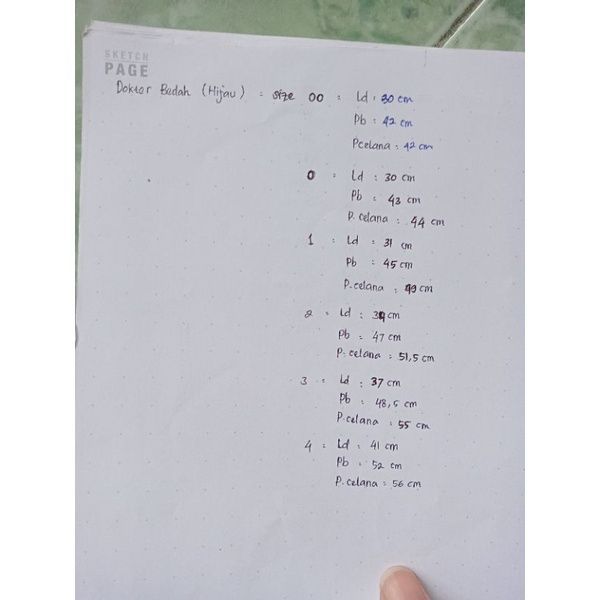 SKETCH
PAGE
Dokter Bedah (Hijau) : size 00 : Ld : 30 cm
Pb : 42 cm
Pcelana : 42 cm
0 : Ld : 30 cm
Pb : 43 cm
P. celana : 44 cm
1 : Ld : 31 cm
Pb : 45 cm
P.celana : 49 cm
2 : Ld : 34 cm
Pb : 47 cm
P. celana : 51,5 cm
3 : Ld : 37 cm
Pb : 48,5 cm
P.celana : 55 cm
4 : Ld : 41 cm
Pb : 52 cm
P. celana : 56 cm